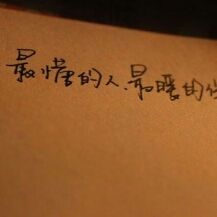 最懂的人.最暖的